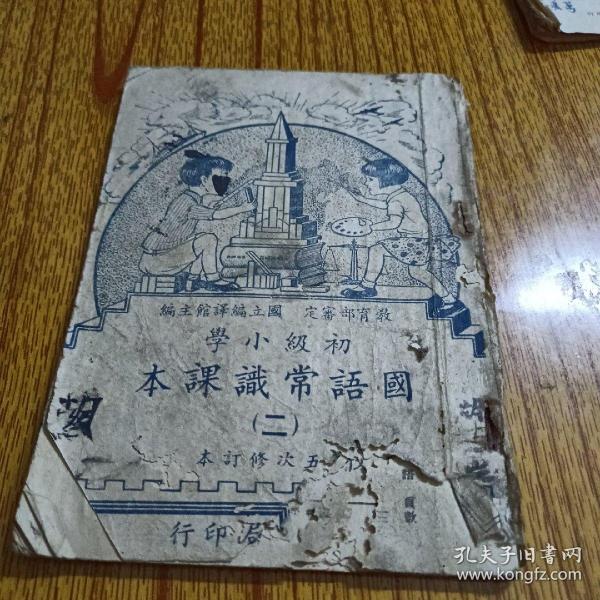 教育部審定　國立編譯館主編
初級小學
國語常識課本
(二)
五次修訂本
局印行
頁數
孔夫子旧书网
www.kongfz.com